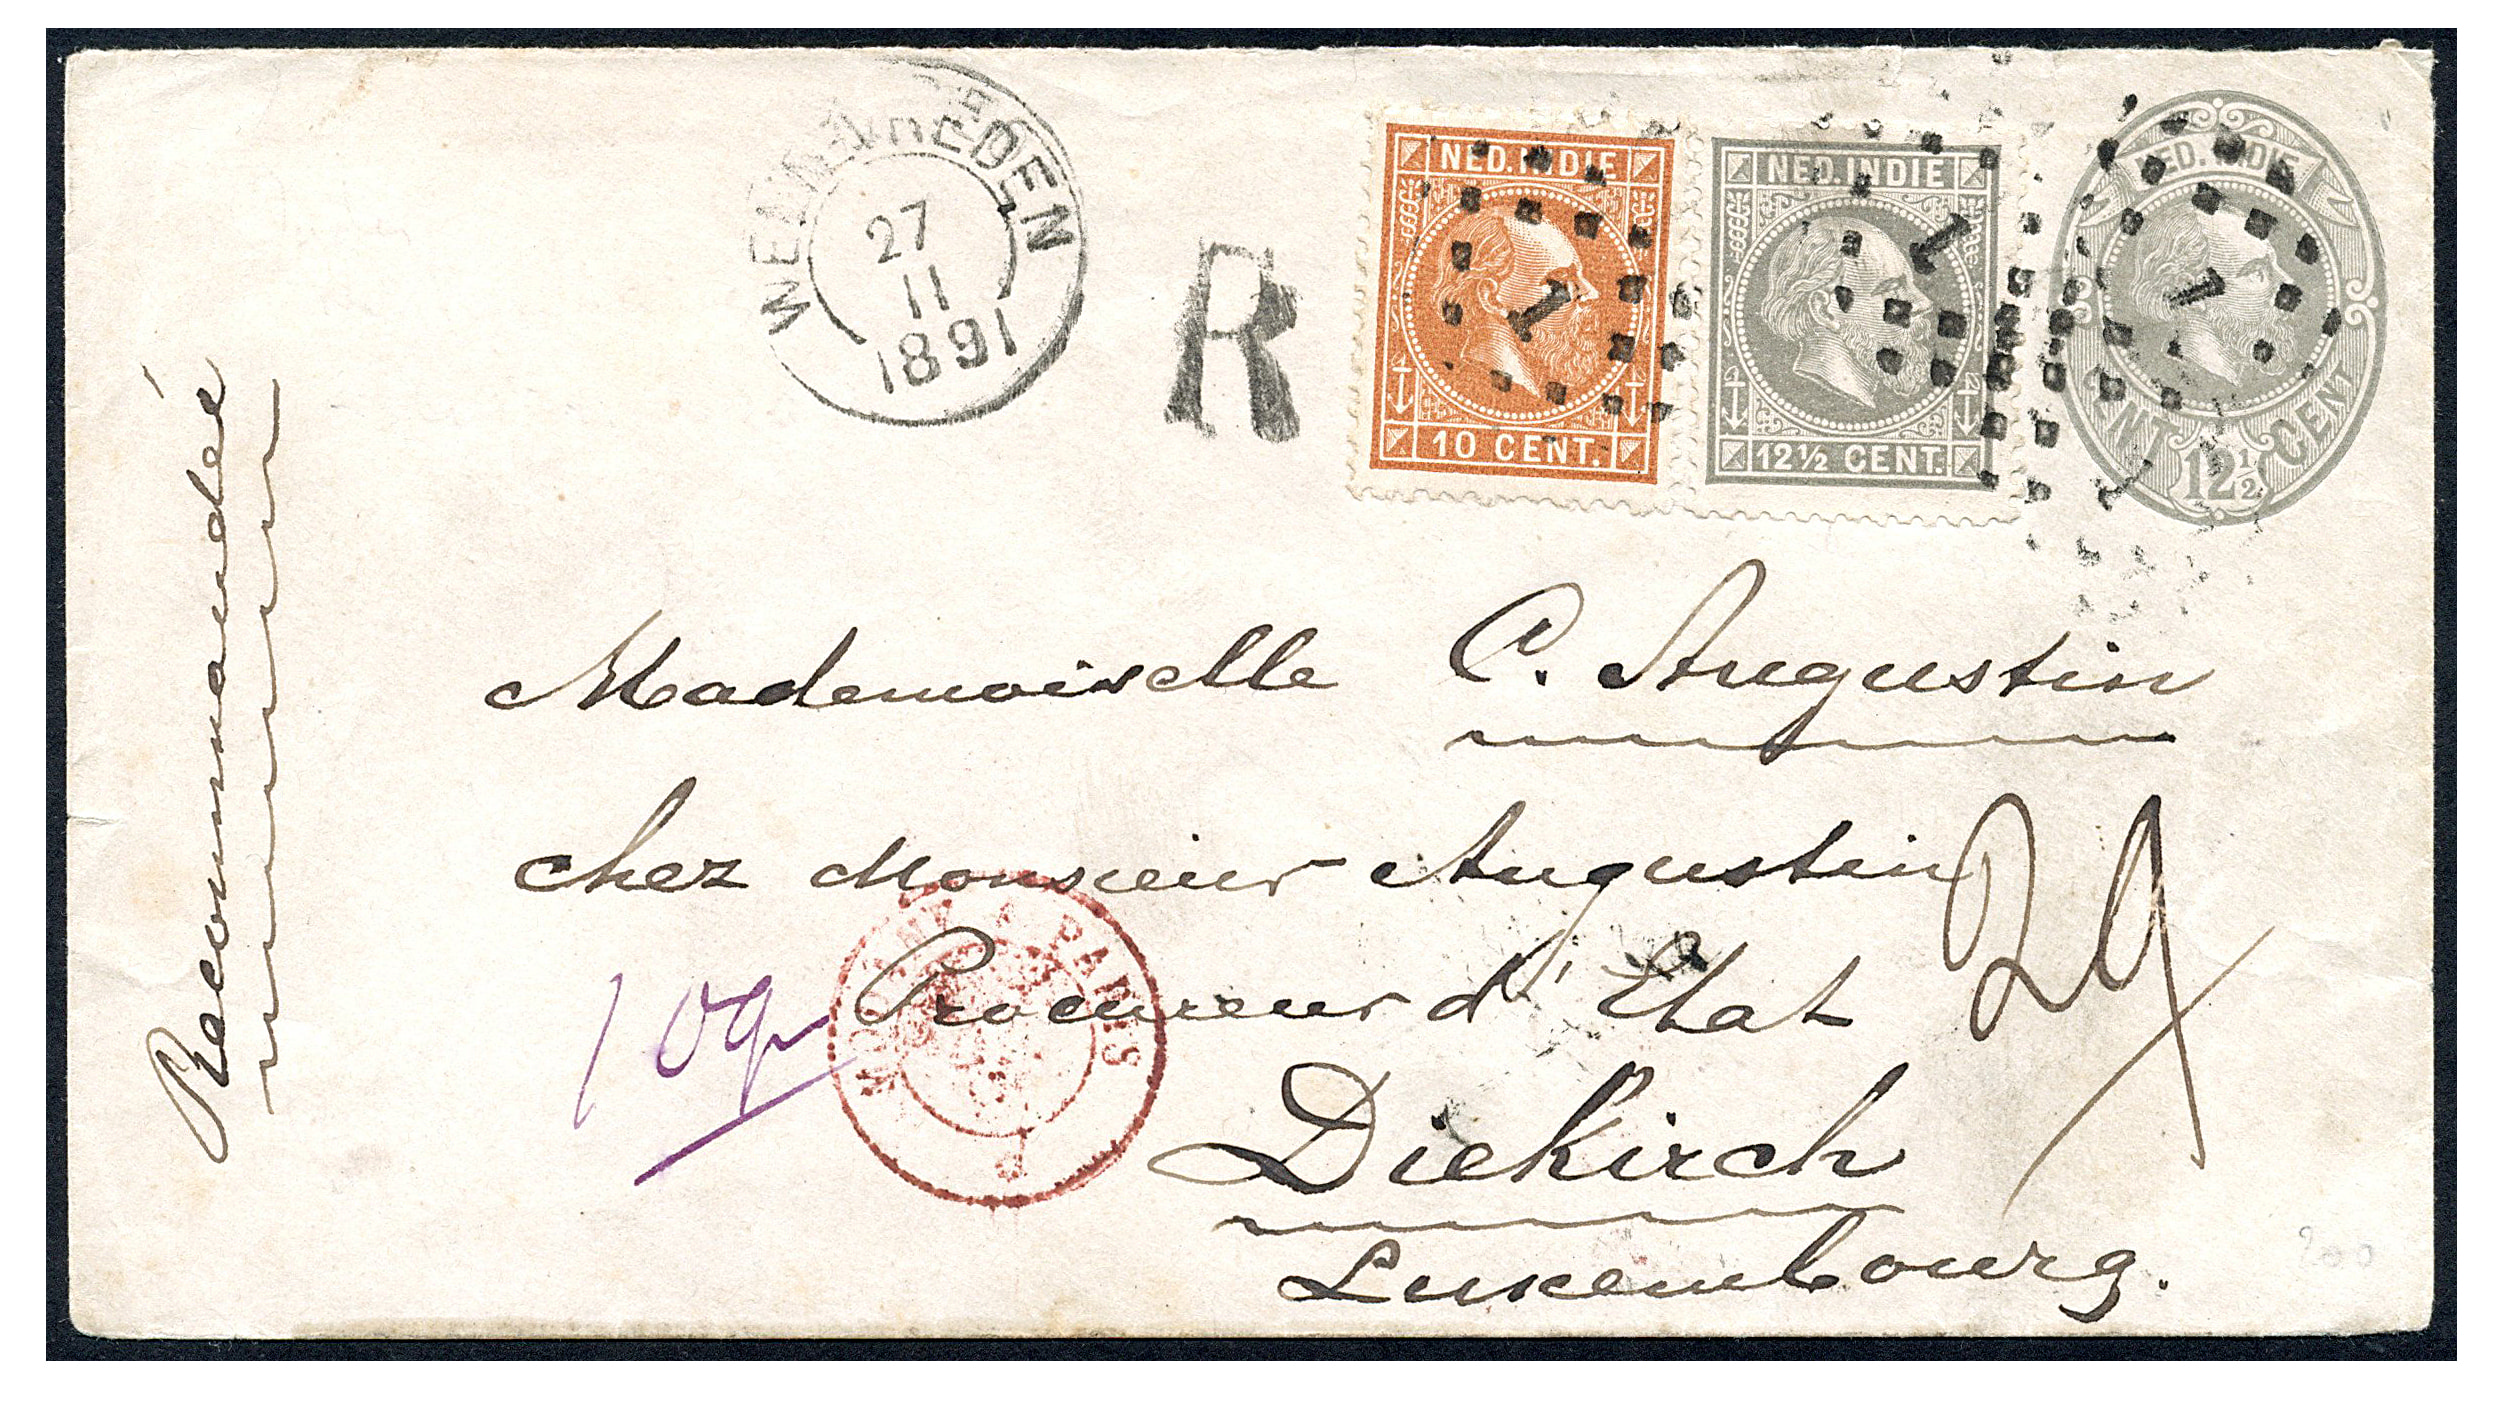 WELTEVREDEN
27
11
1891
R
NED. INDIE
10 CENT.
1
NED. INDIE
12½ CENT.
1
NED. INDIE
CENT 12½ CENT
1
Recommandée
Mademoiselle C. Augustin
chez Monsieur Augustin
Procureur d'Etat
Diekirch
Luxembourg.
29
10g
PARIS
200